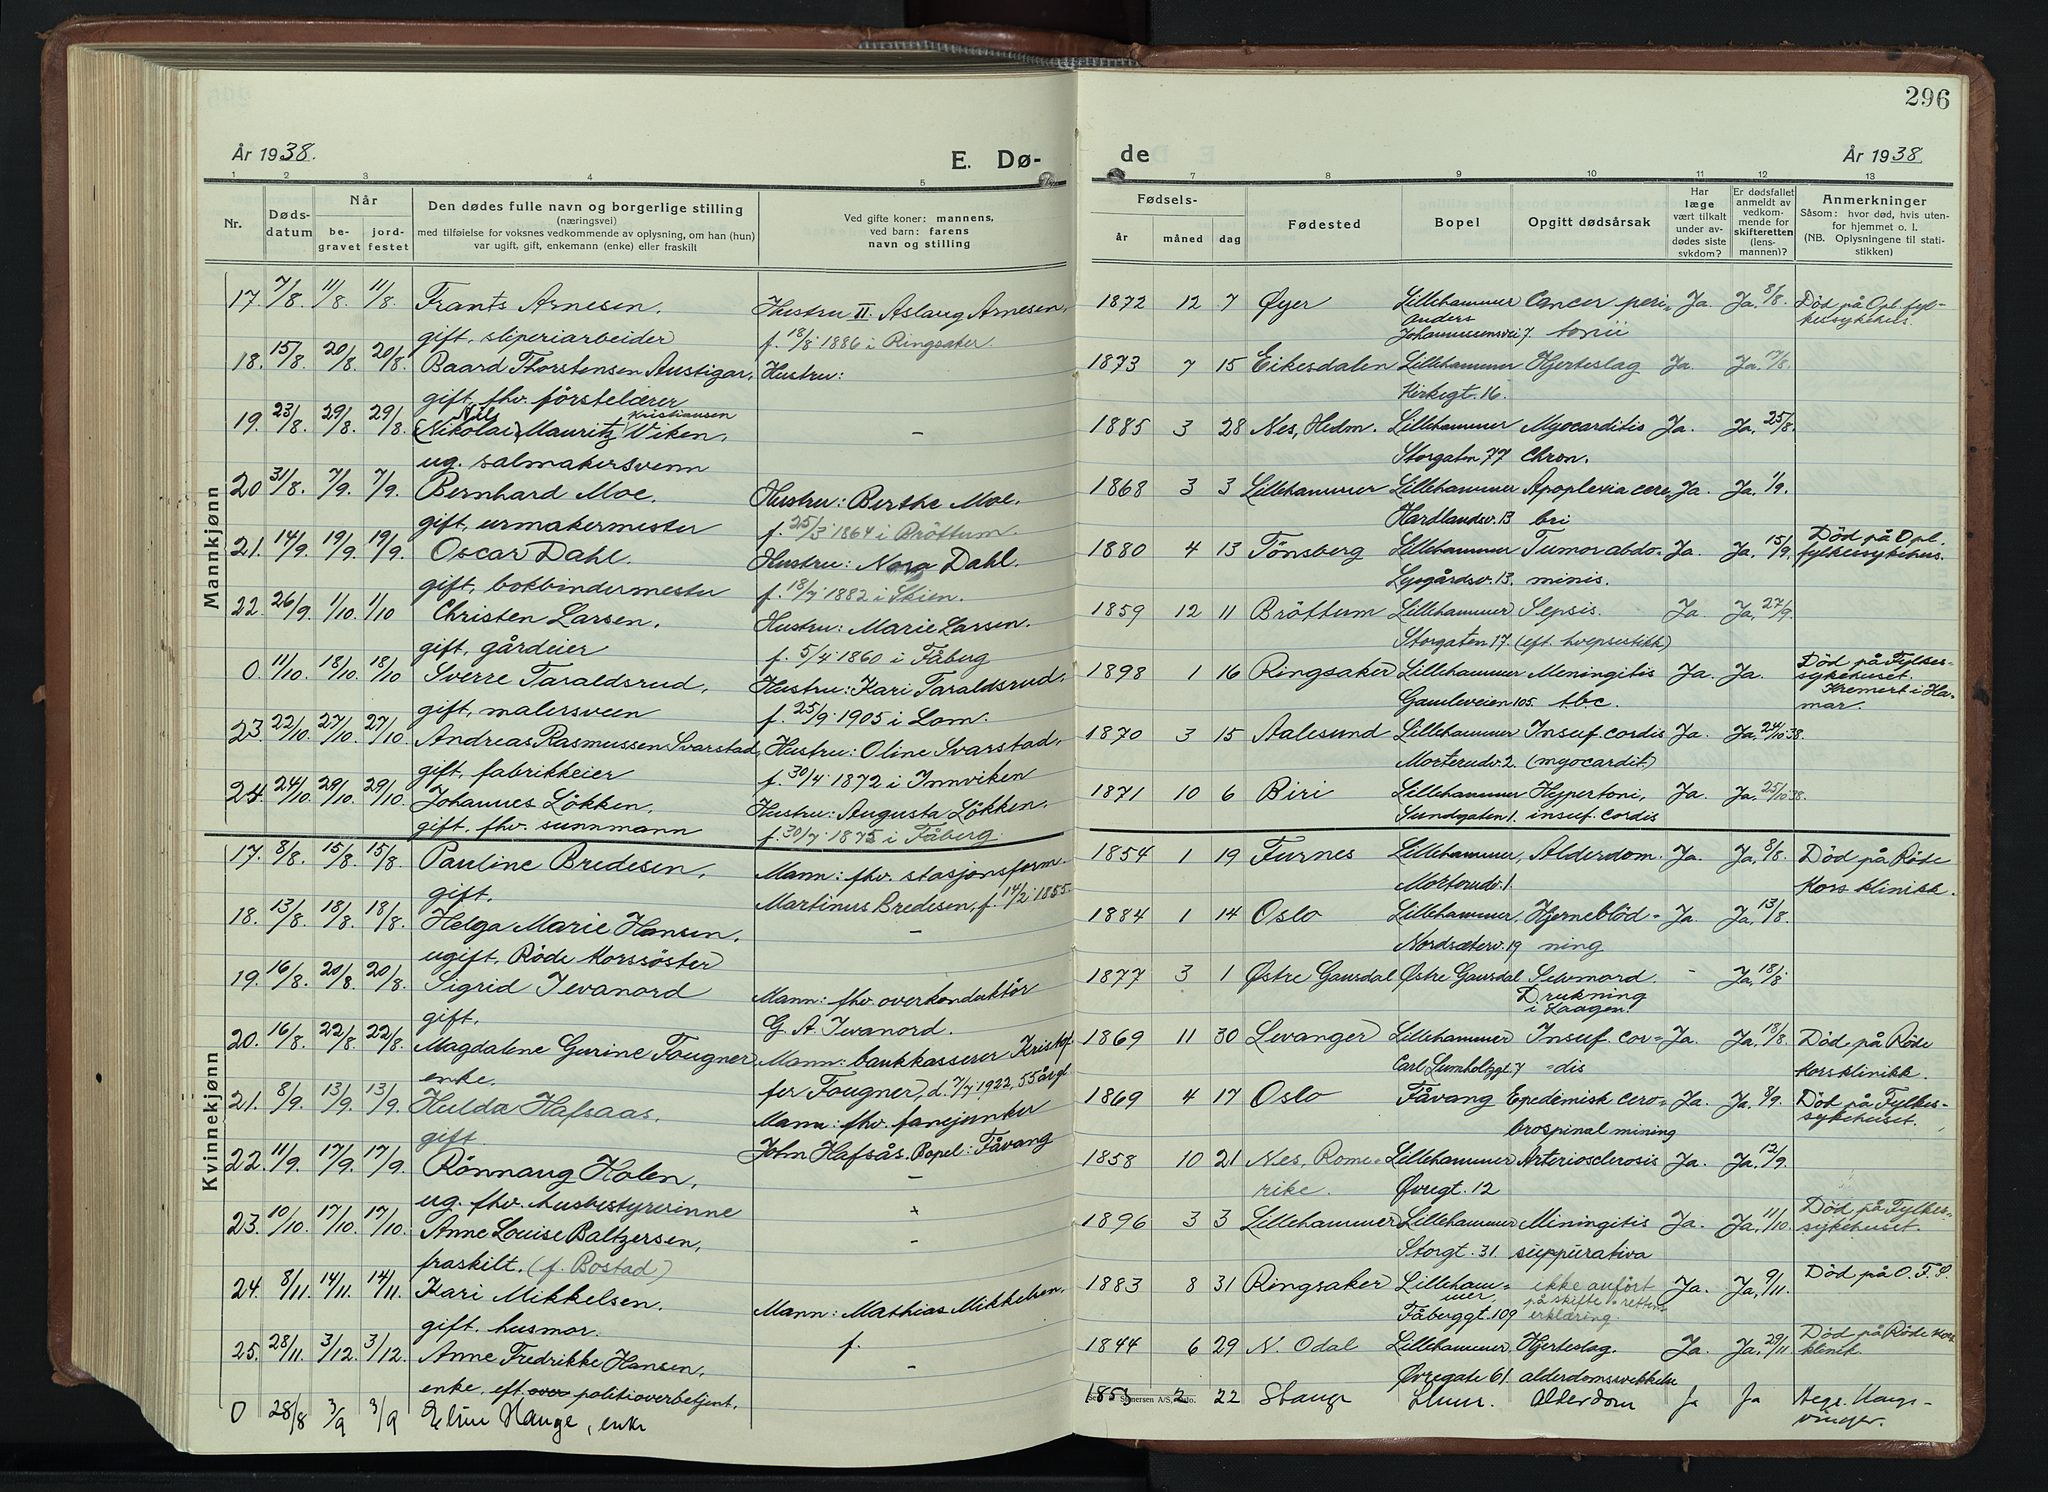 296
År 1938.
E. Dø-
de
År 1938
1 2 3 4 5 7 8 9 10 11 12 13
Nr.
Døds-
datum
Når
be-
gravet
jord-
festet
Den dødes fulle navn og borgerlige stilling
(næringsvei)
med tilføielse for voksnes vedkommende av oplysning, om han (hun)
var ugift, gift, enkemann (enke) eller fraskilt
Ved gifte koner: mannens,
ved barn: farens
navn og stilling
Fødsels-
år måned dag
Fødested
Bopel
Opgitt dødsårsak
Har
læge
vært tilkalt
under av-
dødes siste
sykdom?
Er dødsfallet
anmeldt av
vedkom-
mende for
skifteretten
(lens-
mannen)?
Anmerkninger
Såsom: hvor død, hvis uten-
for hjemmet o. l.
(NB. Oplysningene til stati-
stikken)
Mannkjønn
17. 7/8. 11/8. 11/8. Frants Arnesen. Hustru II. Aslaug Arnesen. 1872 12 7 Øyer Lillehammer Cancer peri- Ja. Ja. 8/8. Død på Opl. fyl-
gift, sliperiarbeider f. 18/8 1886 i Ringsaker. Anders Johannessensvei 7. tonii kessykehus.
18. 15/8. 20/8. 20/8. Baard Thorstensen Austigar. Hustru: 1873 7 15 Eikesdalen Lillehammer Hjerteslag Ja. Ja. 17/8.
gift, fhv. førstelærer Kirkegt. 16.
19. 23/8. 29/8. 29/8. (Nikolai) Nils Mauritz Kristiansen Viken. - 1885 3 28 Nes, Hedm. Lillehammer Myocarditis Ja. Ja, 25/8.
ug. salmakersvenn Storgaten 77 chron.
20 31/8. 7/9. 7/9. Bernhard Moe. Hustru: Berthe Moe. 1868 3 3 Lillehammer Lillehammer Apoplexia cere Ja. Ja, 1/9.
gift, urmakermester f. 25/3 1864 i Brøttum. Hardlandsv. 13 bri
21. 14/9. 19/9. 19/9. Oscar Dahl. Hustru: Nora Dahl. 1880 4 13 Tønsberg Lillehammer Tumor abdo- Ja. Ja, 15/9. Död på Opl.
gift, bokbindermester f. 18/7 1882 i Skien. Lysgårdsv. 13. minis. fylkessykehus.
22. 26/9. 1/10. 1/10 Christen Larsen. Hustru: Marie Larsen. 1859 12 11 Bröttum Lillehammer Sepsis. Ja Ja, 27/9.
gift, gårdeier f. 5/4 1860 i Fåberg Storgaten 17 (eft. hvepsestikk)
0 11/10. 18/10 18/10 Sverre Taraldsrud. Hustru: Kari Taraldsrud. 1898 1 16 Ringsaker Lillehammer Meningitis Ja. Ja. Död på Fylkes-
gift, malersveen f. 25/9 1905 i Lom. Gamleveien 105. tbc. sykehuset. Kremert i Ha-
mar.
23 22/10. 27/10. 27/10. Andreas Rasmussen Svarstad, Hustru: Oline Svarstad. 1870 3 15 Aalesund Lillehammer Insuf. cordis Ja. Ja, 24/10 38.
gift, fabrikkeier f. 30/4 1872 i Innviken Morterudv. 2. (myocardit)
24. 24/10. 29/10. 29/10. Johannes Lökken. Hustru: Augusta Lökken. 1871 10 6 Biri Lillehammer Hypertoni, Ja. Ja, 25/10 38.
gift. fhv. sunnmann f. 30/7 1875 i Fåberg. Sundgaten 1. insuf. cordis
Kvinnekjønn
17. 8/8. 15/8. 15/8 Pauline Bredesen. Mann: fhv. stasjonsform. 1854 1 19 Furnes Lillehammer, Alderdom. Ja. Ja, 8/8. Död på Röde
gift. Martinus Bredesen, f. 14/2 1855. Morterudv. 1. Kors klinikk.
18. 13/8. 18/8. 18/8. Helga Marie Hansen. - 1884 1 14 Oslo Lillehammer. Hjerneblöd- Ja. Ja, 13/8.
ugift. Röde Korssöster Nordsæterv. 19 ning
19. 16/8. 20/8. 20/8. Sigrid Jevanord Mann: fhv. overkonduktör 1877 3 1 Østre Gausdal Østre Gausdal Selvmord. - Ja, 18/8.
gift. G. A. Jevanord. Drukning i Laagen.
20. 16/8. 22/8. 22/8. Magdalene Gurine Fougner Mann: bankkasserer Kristof- 1869 11 30 Levanger Lillehammer Insuf. cor- Ja. Ja. 18/8. Död på Röde
enke. fer Fougner, d. 7/7 1922, 55 år gl. Carl Lumholtzgt. 7 -dis Korsklinikk.
21. 8/9. 13/9. 13/9. Hulda Hafsaas. Mann: fhv. fanejunker 1869 4 17 Oslo Fåvang Epedemisk cero- Ja. Ja. 8/9. Död på Fylkes-
gift. John Hafsås. Bopel: Fåvang brospinal mining sykehuset.
22. 11/9. 17/9. 17/9. Rönnaug Holen. - 1858 10 21 Nes, Rome- Lillehammer Arteriosclerosis Ja. Ja, 12/9.
ug. fhv. husbestyrerinne rike. Øvregt. 12
23. 10/10. 17/10. 17/10. Anne Louise Baltzersen, - 1896 3 3 Lillehammer Lillehammer Miningitis Ja. Ja, 11/10. Död på Fylkes-
fraskilt. (f. Bostad) Storgt. 31. suppurativa sykehuset.
24. 8/11. 14/11. 14/11. Kari Mikkelsen. Mann: Mathias Mikkelsen. 1883 8 31 Ringsaker Lilleham- ikke anfört Ja, Ja, 9/11. Död på O. F. S.
gift. husmor. f. mer, Fåberggt. 109 på skifterettens erklæring.
25. 28/11. 3/12. 3/12. Anne Fredrikke Hansen. - 1844 6 29 N. Odal Lillehammer Hjerteslag. Ja Ja, 29/11 Död på Röde Kors
enke. eft. over politioverbetjent. Øvregate 61. alderdomssvekkelse klinik.
0 28/8 3/9 3/9 Eline Hauge, enke 1851 2 22 Stange Lhmr. Alderdom Ja Ja Begr. Kongs-
vinger.